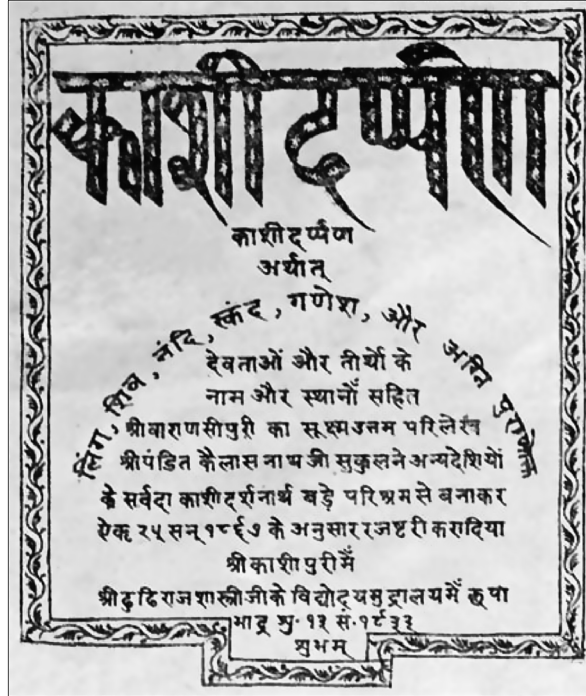 काशीदर्प्पण
काशीदर्प्पण
अर्थात्
लिंग, शिव, नंदि, स्कंद, गणेश, और अग्नि पुराणोक्त
देवताओं और तीर्थों के
नाम और स्थानोँ सहित
श्रीवाराणसीपुरी का सूक्ष्म उत्तम परिलेख
श्रीपंडित कैलासनाथजी सुकुलने अन्यदेशियों
के सर्वदा काशीदर्शनार्थ बड़े परिश्रमसे बनाकर
ऐक्ट २५ सन् १८६७ के अनुसार रजष्टरी करादिया
श्रीकाशीपुरीमेँ
श्रीढुंढिराजशास्त्रीजीके विद्योदयमुद्रालयमेँ छपा
भाद्र शु॰ १३ सं॰ १९३३
शुभम्